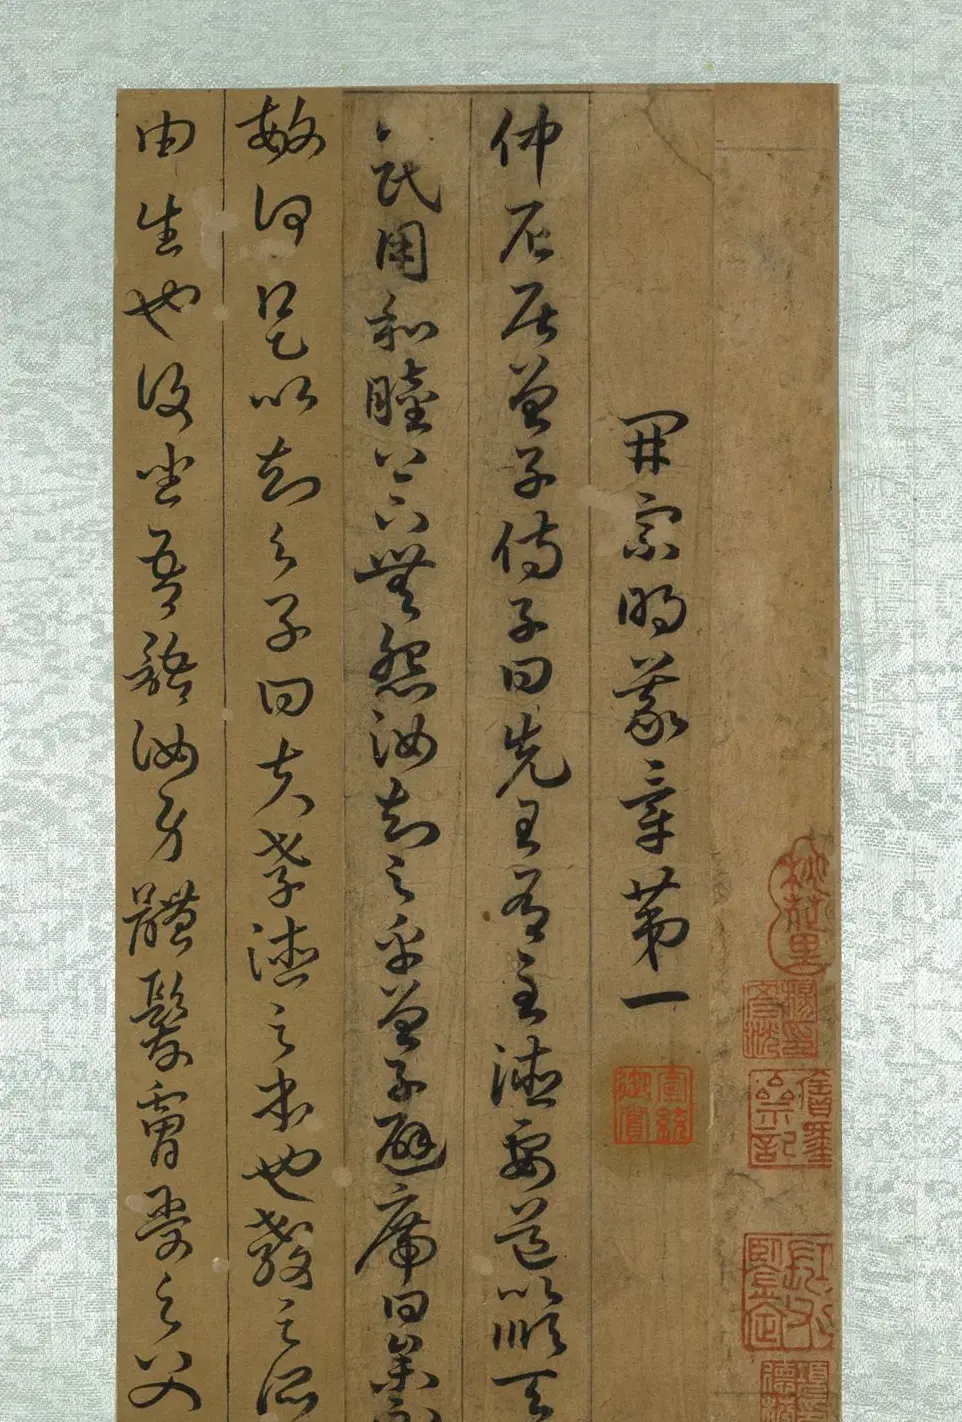 開宗明義章第一
宣統御賞
仲尼居曾子侍子曰先王有至德要道以順天
下民用和睦上下無怨汝知之乎曾子避席曰參不
敏何足以知之子曰夫孝德之本也教之所
由生也復坐吾語汝身體髮膚受之父